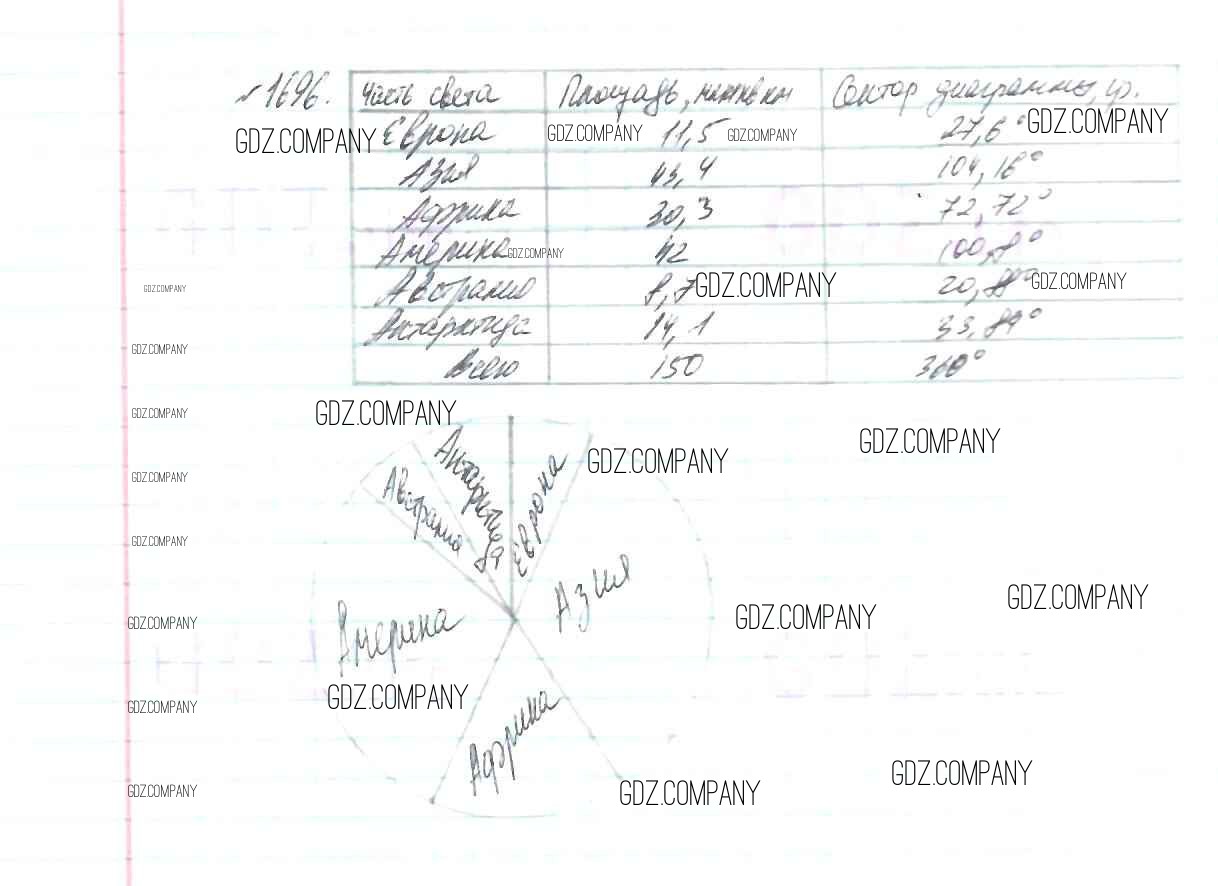 №1696. Часть света Площадь, млн кв км Сектор диаграммы, гр.
GDZ.COMPANY Европа GDZ.COMPANY 11,5 GDZ.COMPANY 27,6° GDZ.COMPANY
Азия 43,4 104,16°
Африка 30,3 72,72°
Америка GDZ.COMPANY 42 100,8°
GDZ.COMPANY Австралия 8,7 GDZ.COMPANY 20,88° GDZ.COMPANY
Антарктида 14,1 33,84°
GDZ.COMPANY Всего 150 360°
GDZ.COMPANY GDZ.COMPANY
GDZ.COMPANY
Антарктида
Европа
GDZ.COMPANY
GDZ.COMPANY Австралия
GDZ.COMPANY
Азия
GDZ.COMPANY
GDZ.COMPANY Америка GDZ.COMPANY
GDZ.COMPANY
GDZ.COMPANY
Африка
GDZ.COMPANY
GDZ.COMPANY GDZ.COMPANY